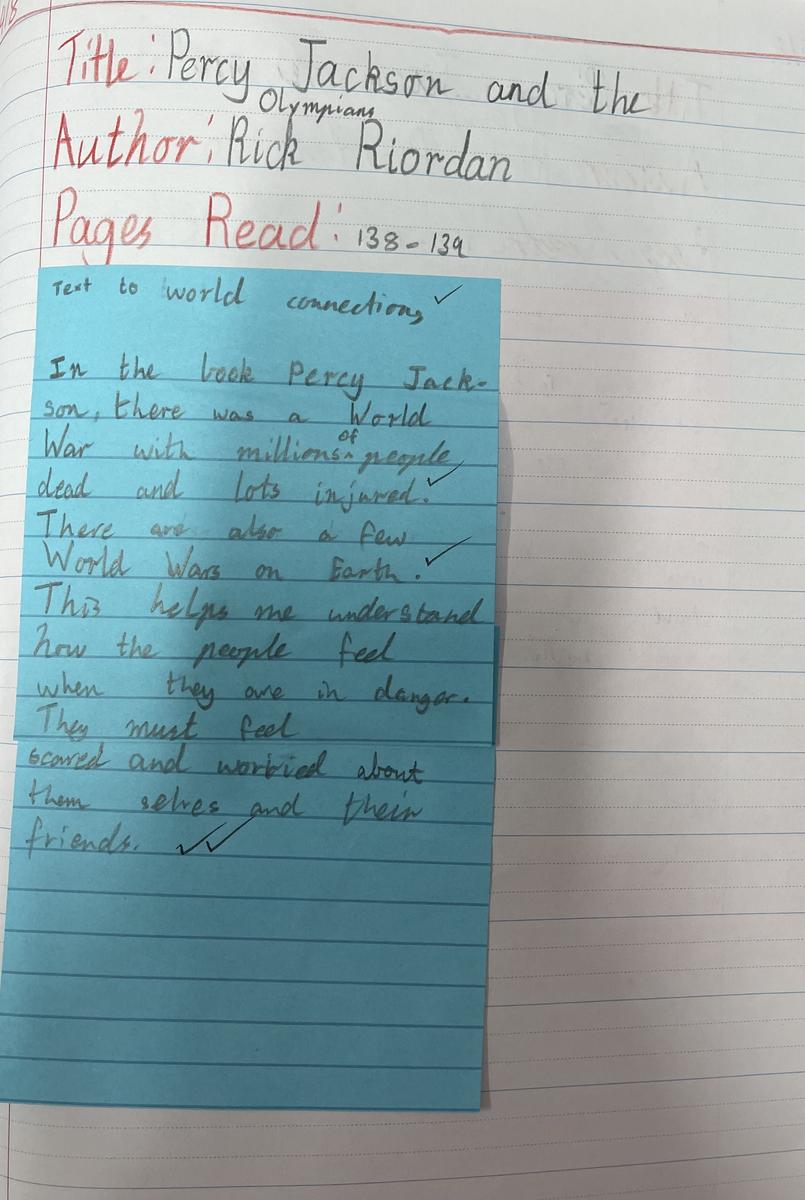 Title: Percy Jackson and the
Olympians
Author: Rick Riordan
Pages Read: 138-139
Text to world connections
In the book Percy Jack-
son, there was a World
War with millions of people
dead and lots injured.
There are also a few
World Wars on Earth.
This helps me understand
how the people feel
when they are in danger.
They must feel
scared and worried about
them selves and their
friends.